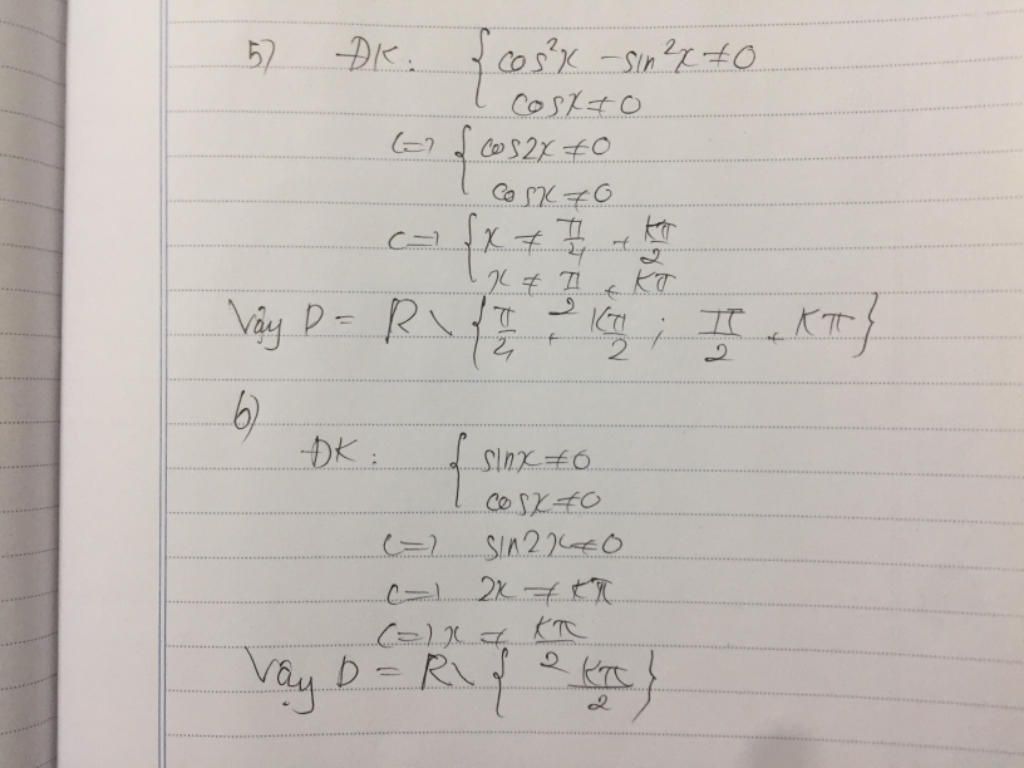 5) ĐK: { cos²x - sin²x ≠ 0
cosx ≠ 0
<=> { cos2x ≠ 0
cosx ≠ 0
<=> { x ≠ π/4 + kπ/2
x ≠ π/2 + kπ
Vậy D = R \ { π/4 + kπ/2 ; π/2 + kπ }
6)
ĐK: { sinx ≠ 0
cosx ≠ 0
<=> sin2x ≠ 0
<=> 2x ≠ kπ
<=> x ≠ kπ/2
Vậy D = R \ { kπ/2 }